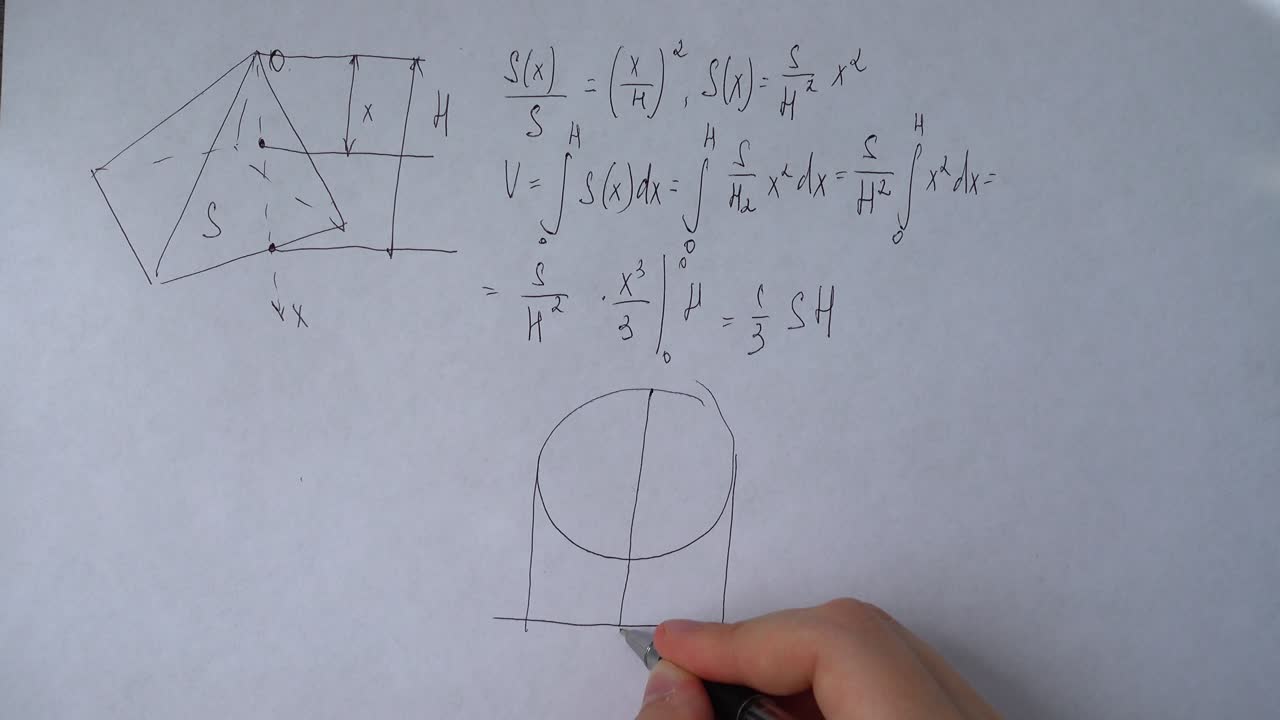 O
x
H
S
x
S(x)/S = (x/H)², S(x) = S/H² x²
V = ∫₀ᴴ S(x)dx = ∫₀ᴴ S/H₂ x²dx = S/H² ∫₀ᴴ x²dx =
= S/H² · x³/3 |₀ H = 1/3 SH